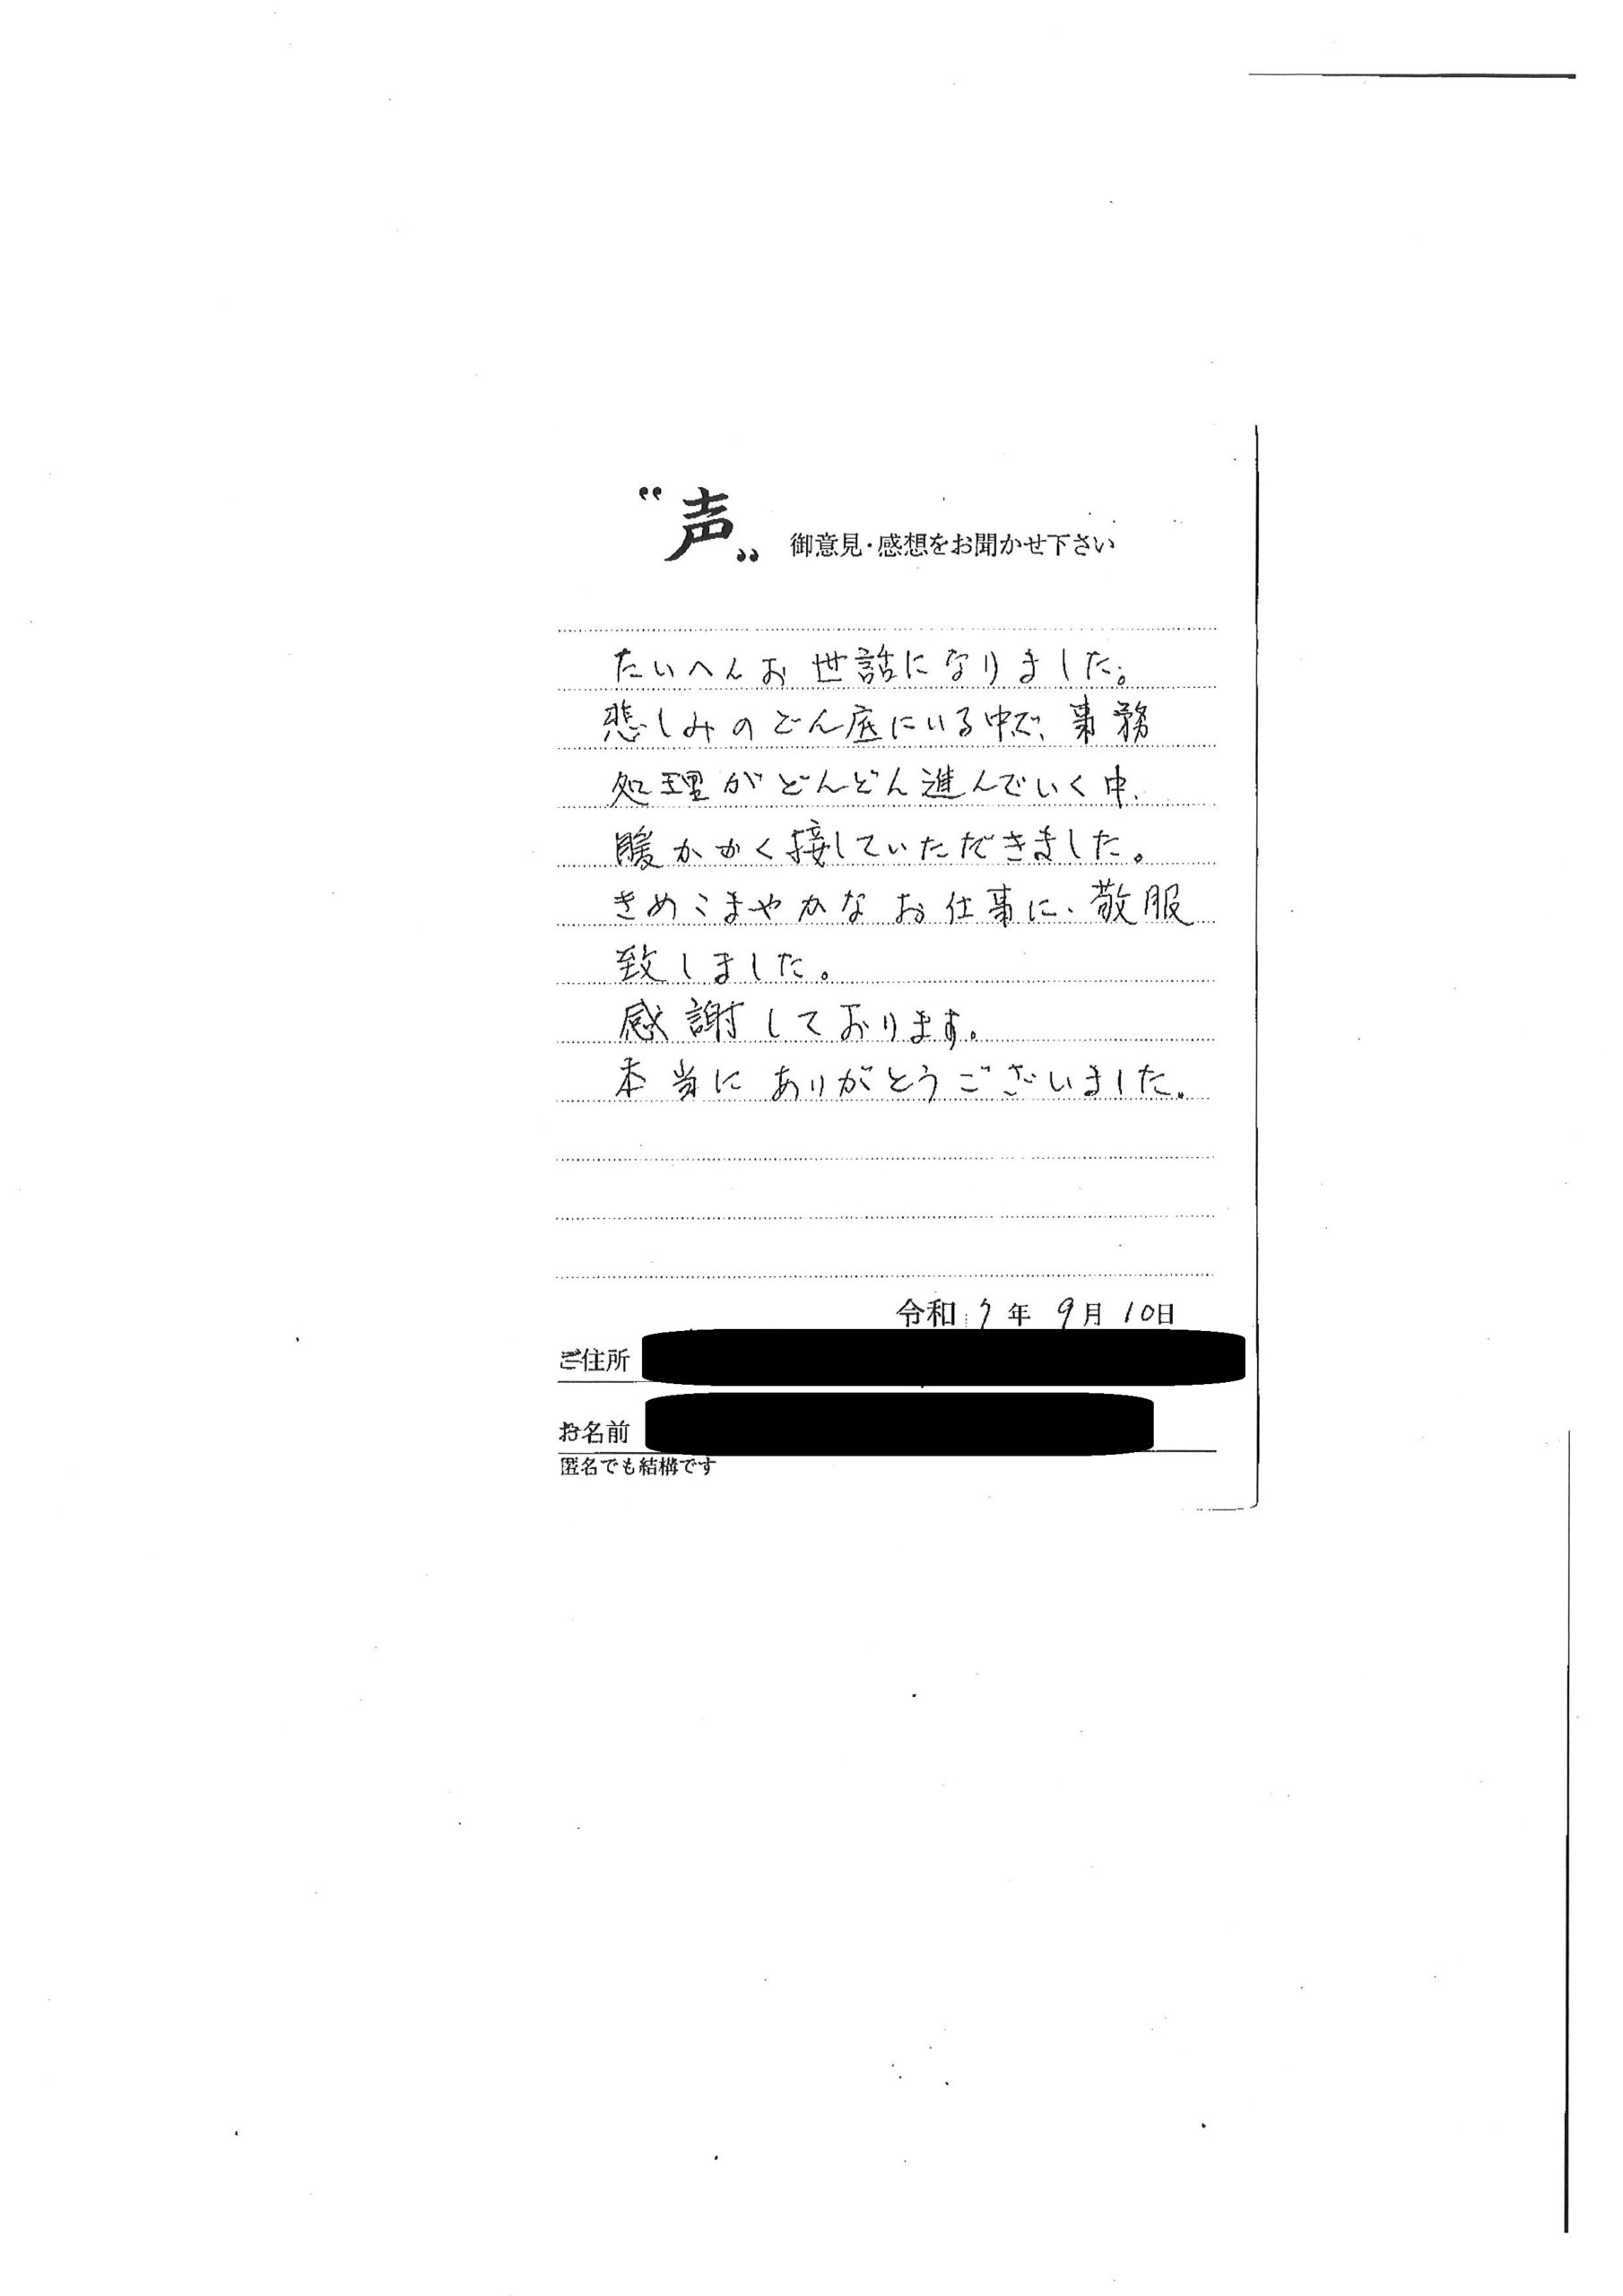 “声„ 御意見・感想をお聞かせ下さい
たいへんお世話になりました。
悲しみのどん底にいる中で、事務
処理がどんどん進んでいく中、
暖かかく接していただきました。
きめこまやかなお仕事に、敬服
致しました。
感謝しております。
本当にありがとうございました。
令和 7 年 9月 10日
ご住所
お名前
匿名でも結構です